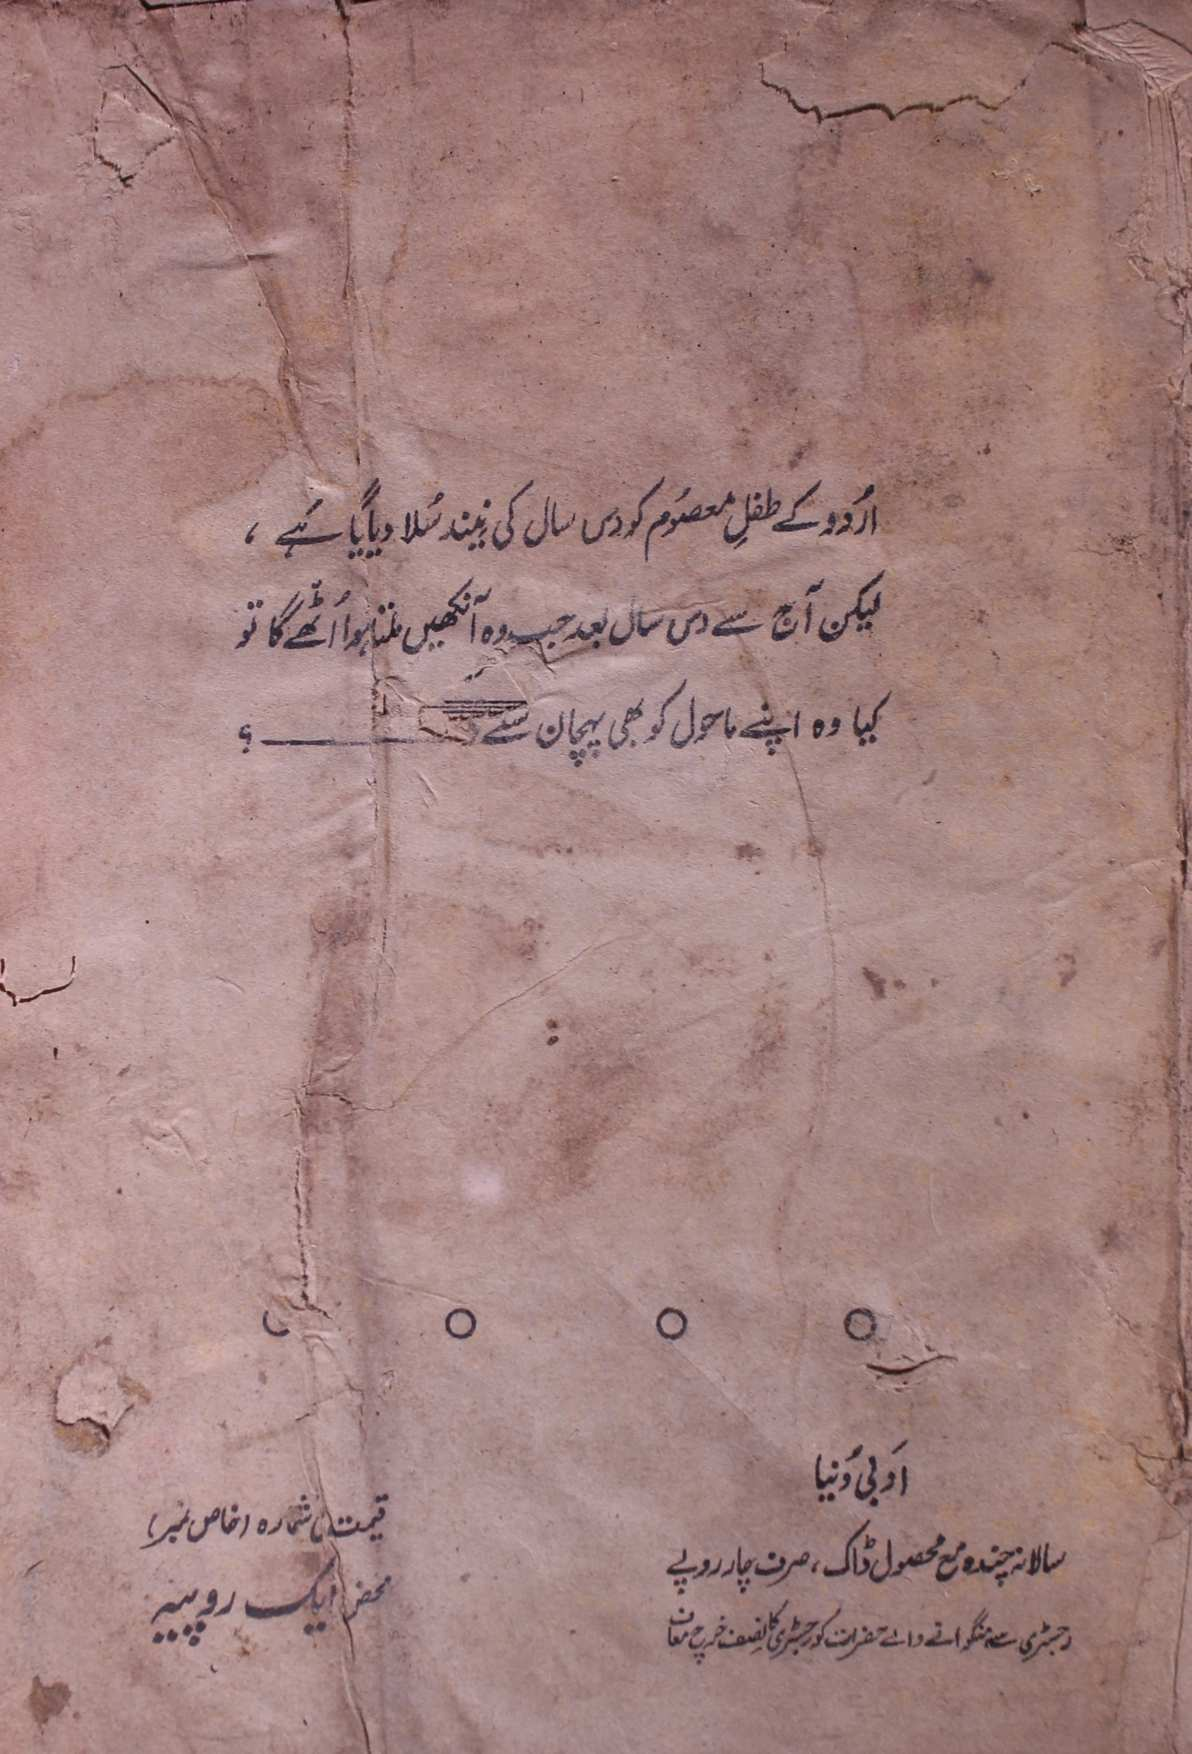 اُردو کے طفلِ معصُوم کو دس سال کی نیند سُلا دیا گیا ہَے ،
لیکن آج سے دس سال بعد جب وہ آنکھیں ملتا ہوا اُٹھّے گا تو
کیا وہ اپنے ماحول کو بھی پہچان سکے ــــــــــــ ؟
ادَبی دُنیا
سالانہ چندہ مع محصول ڈاک ، صرف چار روپے
رجسٹری سے منگوانے والے حضرات کو رجسٹری کا نصف خرچ معاف
قیمت فی شمارہ (خاص نمبر)
محض ایک روپیہ